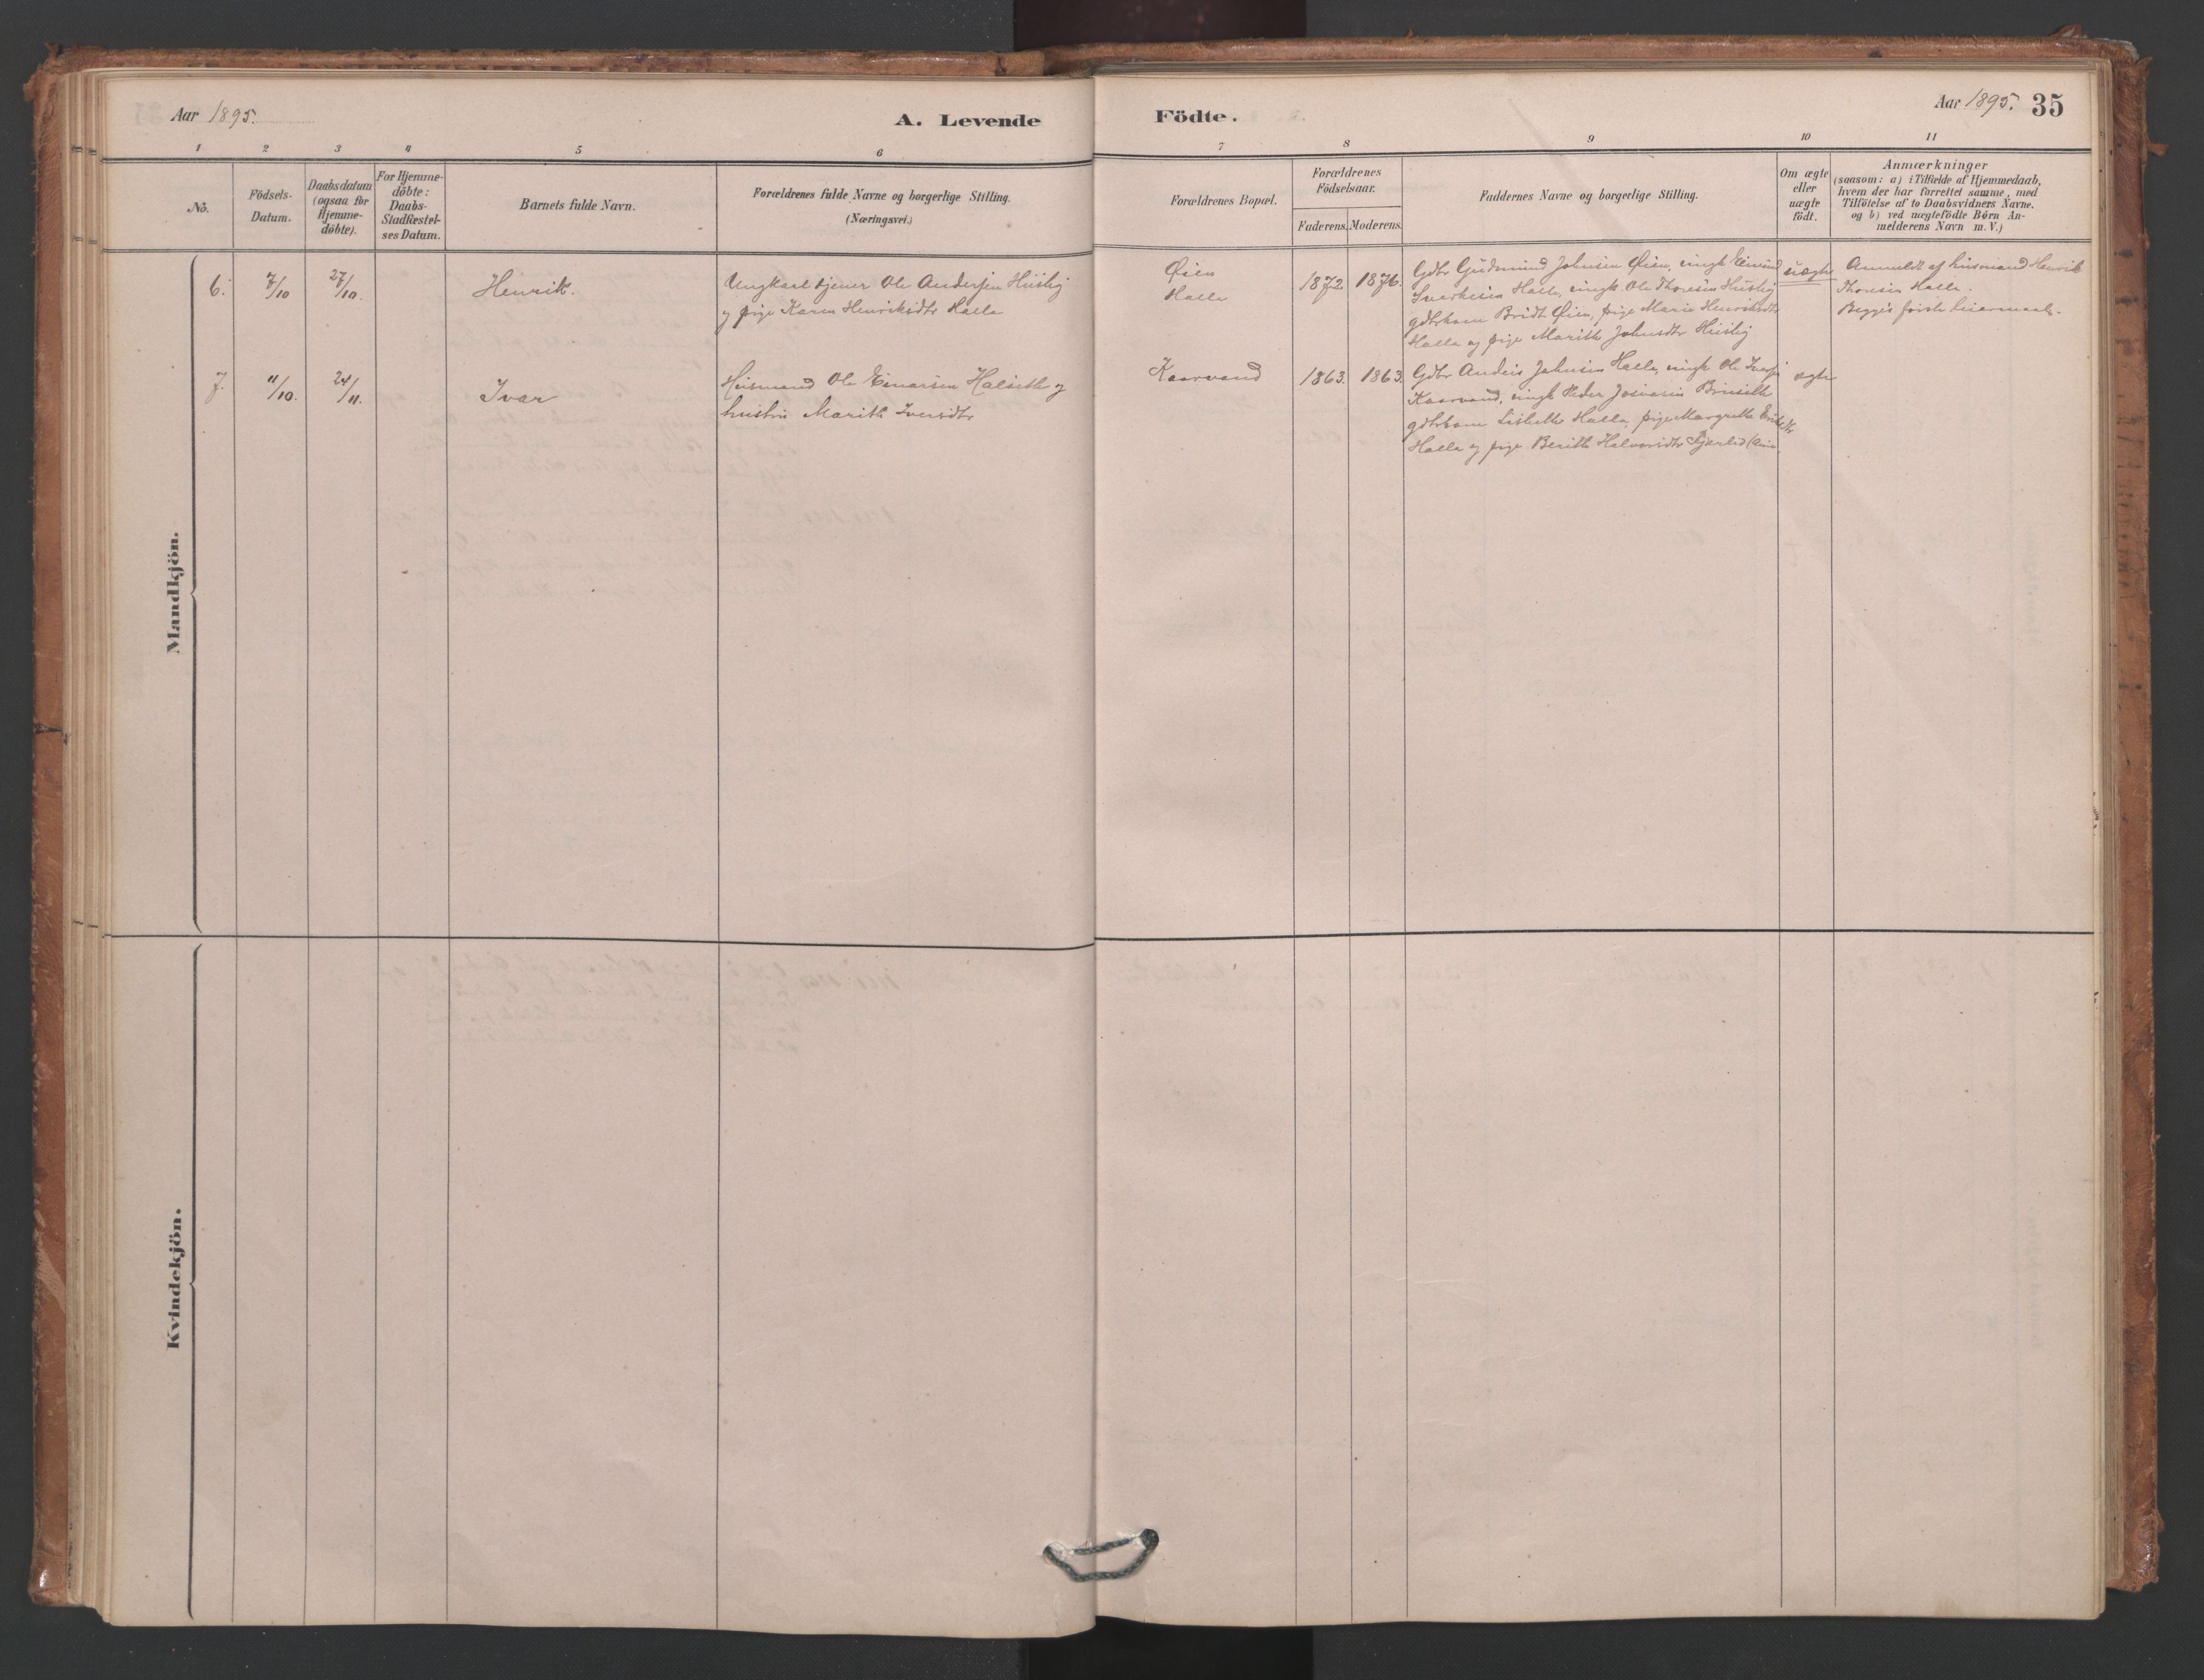 Aar 1895.
A. Levende
Födte.
Aar 1895. 35
1 2 3 4 5 6 7 8 9 10 11
No.
Födsels-
Datum.
Daabsdatum
(ogsaa for
Hjemme-
döbte).
For Hjemme-
döbte:
Daabs-
Stadfæstel-
ses Datum.
Barnets fulde Navn.
Forældrenes fulde Navne og borgerlige Stilling.
(Næringsvei.)
Forældrenes Bopæl.
Forældrenes
Födselsaar.
Faderens. Moderens.
Faddernes Navne og borgerlige Stilling.
Om ægte
eller
uægte
födt.
Anmærkninger
(saasom: a) i Tilfælde af Hjemmedaab,
hvem der har forrettet samme, med
Tilföielse af to Daabsvidners Navne.
og b) ved uægtefödte Börn An-
melderens Navn m. V.)
Mandkjön.
6.
7/10
27/10.
Henrik.
Ungkarl tjener Ole Andersen Huslig
og pige Karen Henriksdtr Halle
Øien
Halle
1872 1876.
Gdbr Gudmund Johnsen Øien, ungk Eivind
Sverkesen Halle, ungk Ole Thoresen Huslig
gdbrkone Bridt Øien, pige Marie Henriksdtr
Halle og pige Marith Johnsdtr Huslig
uægte
Anmeldt af husmand Henrik
Thoresen Halle.
Begges første leiermaal.
7.
11/10.
24/11.
Ivar
Husmand Ole Einarsen Halseth og
hustru Marith Iversdtr
Kaarvand
1863. 1863.
Gdbr Anders Johnsen Halle, ungk Ole Iversen
Kaarvand, ungk Peder Bruseth
gdbrkone Lisbeth Halle, pige Margrethe
Halle og pige Berith Halvorsdtr
ægte
Kvindekjön.